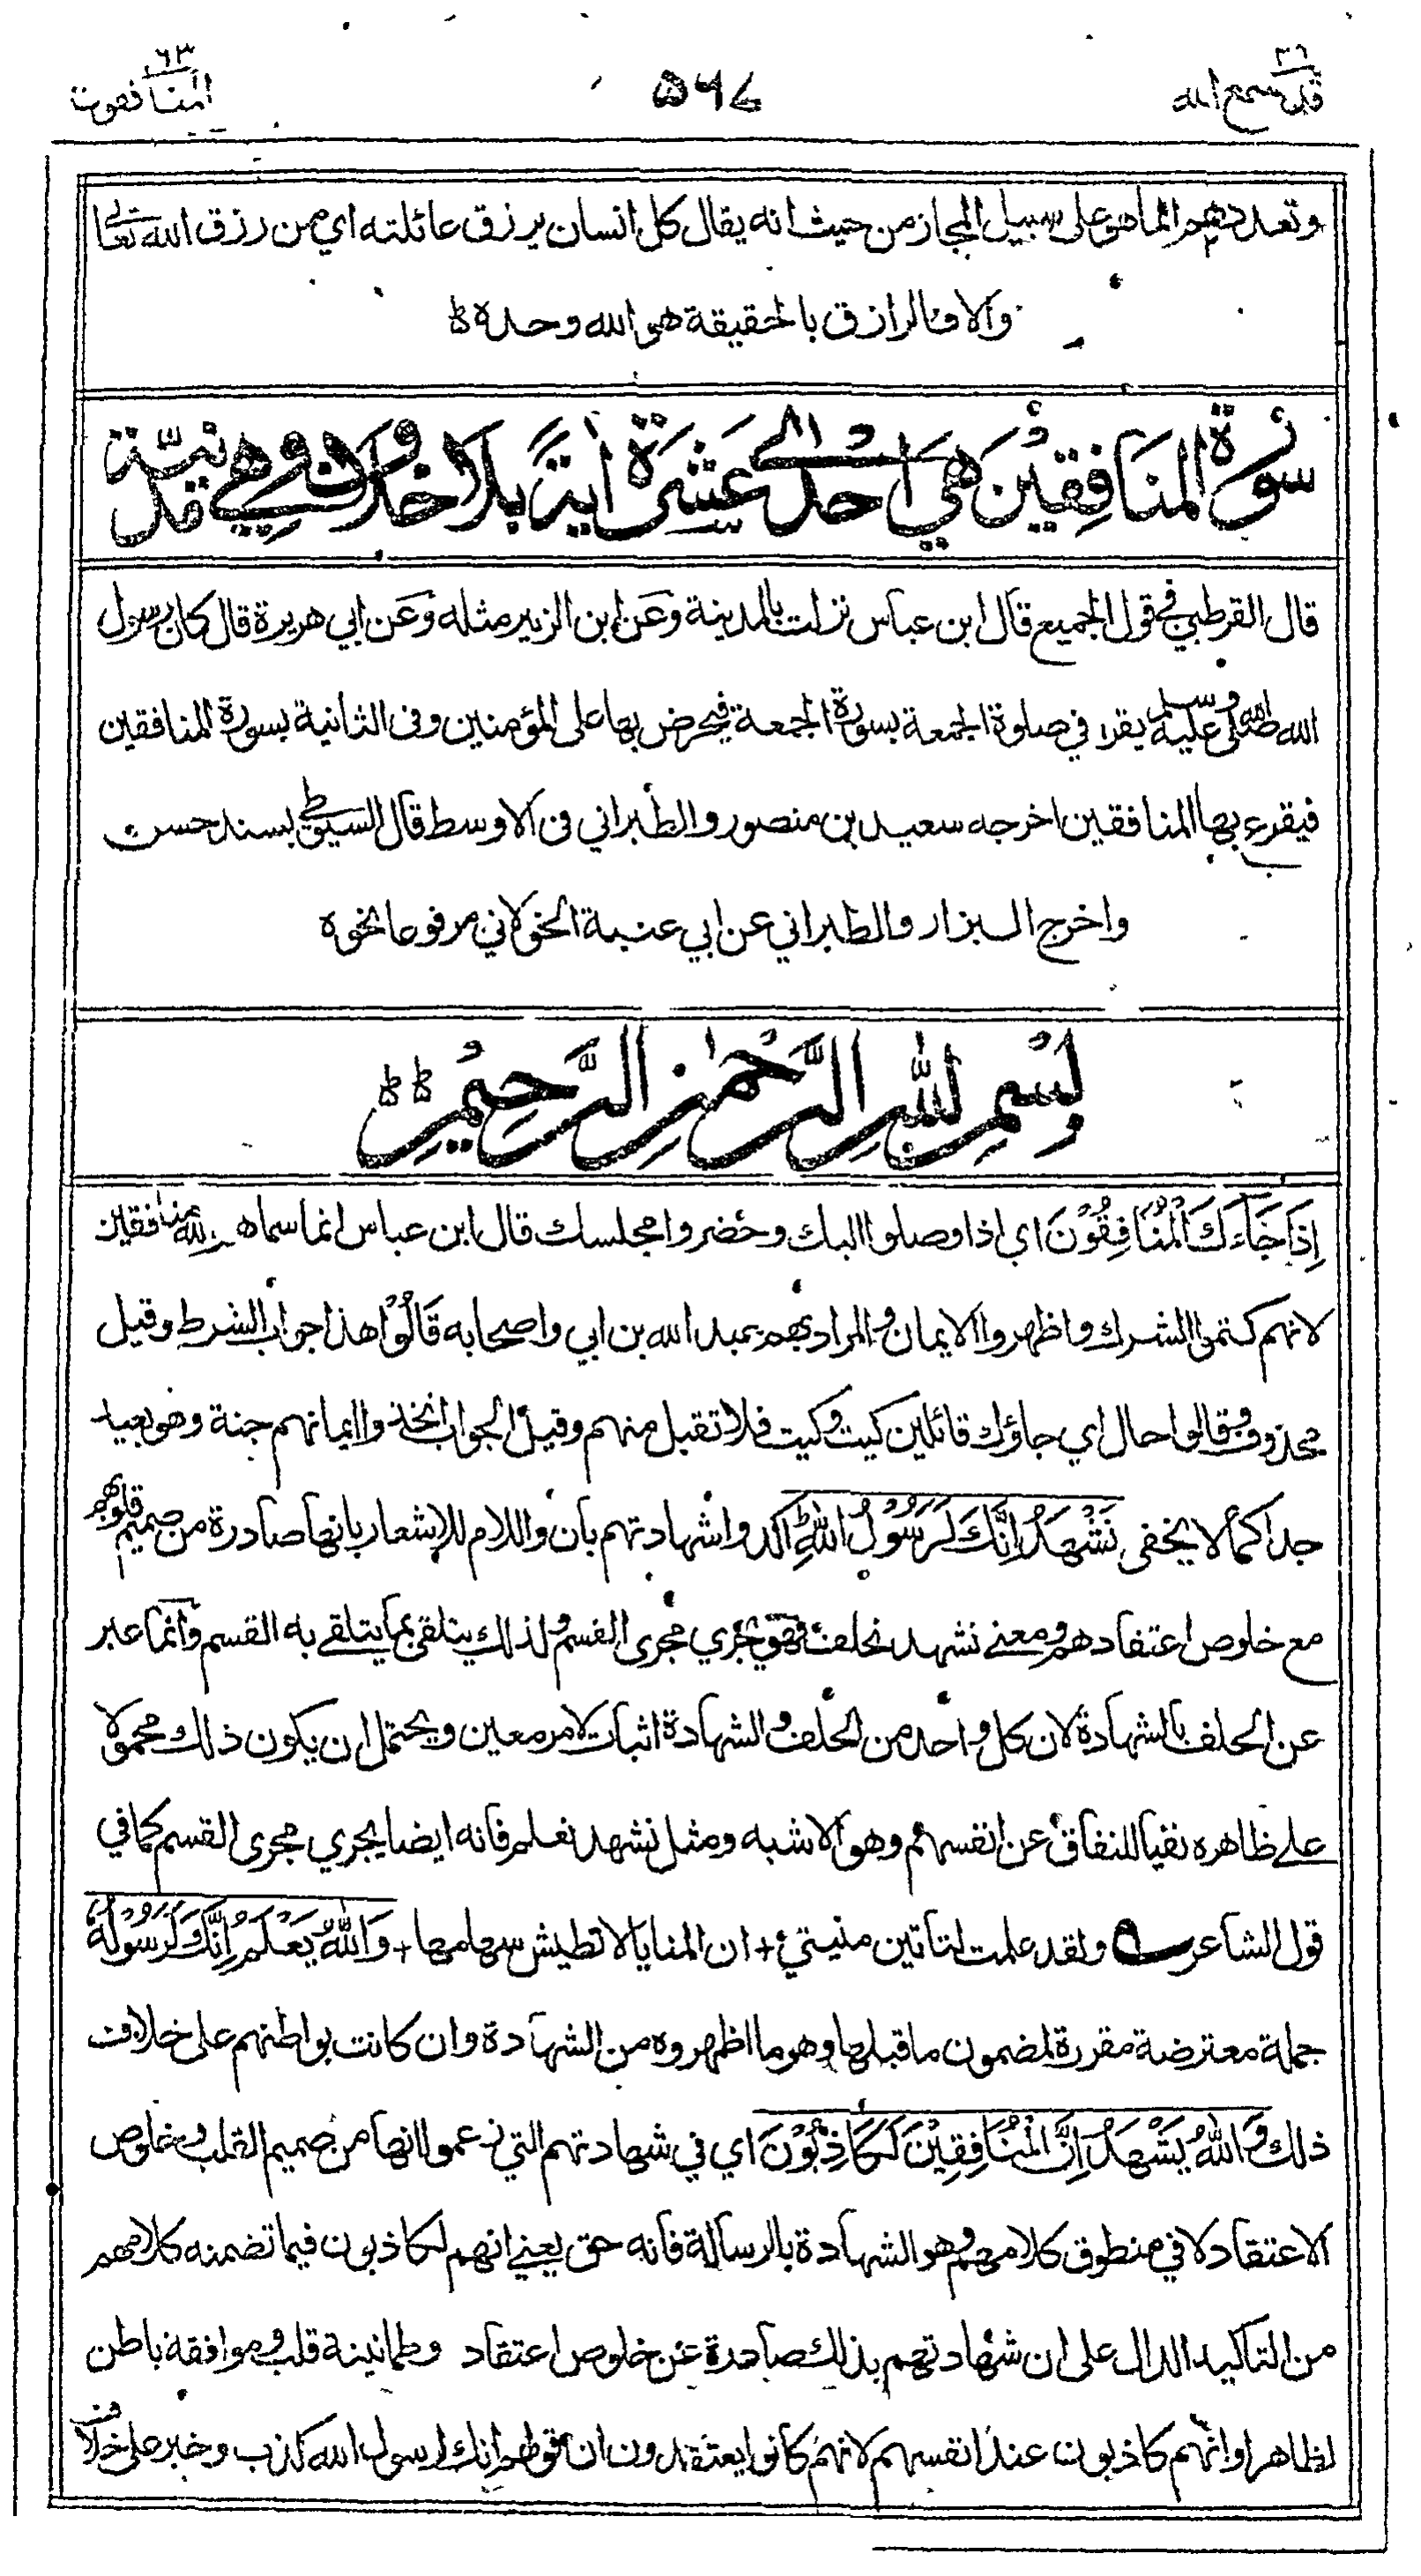 قد سمع الله ٢٨
٥٦٧
المنافقون ٦٣
وتعددهم انما هو على سبيل المجاز من حيث انه يقال كل انسان يرزق عائلته اي من رزق الله تعالى
والا فالرازق بالحقيقة هو الله وحده
سُوْرَةُ المنَافِقِيْنَ هِيَ اِحْدٰى عَشَرَةَ اٰيَةً بلا خلاف وهي مدنية
قال القرطبي في قول الجميع قال ابن عباس نزلت بالمدينة وعن ابن الزبير مثله وعن ابي هريرة قال كان رسول
الله صلى الله عليه وسلم يقرا في صلوة الجمعة بسورة الجمعة فيحرض بها على المؤمنين وفى الثانية بسورة المنافقين
فيقرع بها المنافقين اخرجه سعيد بن منصور والطبراني فى الاوسط قال السيوطي بسند حسن
واخرج البزار والطبراني عن ابي عنبة الخولاني مرفوعا نحوه
بِسْمِ اللهِ الرَّحْمٰنِ الرَّحِيْمِ
اِذَا جَآءَكَ الْمُنَافِقُوْنَ اي اذا وصلوا اليك وحضروا مجلسك قال ابن عباس انما سماهم الله منافقين
لانهم كتموا الشرك واظهروا الايمان والمراد بهم عبد الله بن ابي واصحابه قَالُوْا هذا جواب الشرط وقيل
محذوف وقالوا حال اي جاؤك قائلين كيت وكيت فلا تقبل منهم وقيل الجواب اتخذوا ايمانهم جنة وهو بعيد
جدا كما لا يخفى نَشْهَدُ اِنَّكَ لَرَسُوْلُ اللهِ اكدوا شهادتهم بان واللام للاشعار بانها صادرة من صميم قلوبهم
مع خلوص اعتقادهم ومعنى نشهد نحلف فهو يجري مجرى القسم ولذلك يتلقى بما يتلقى به القسم وانما عبر
عن الحلف بالشهادة لان كل واحد من الحلف والشهادة اثبات لامر معين ويحتمل ان يكون ذلك محمولا
على ظاهره نفيا للنفاق عن انفسهم وهو الاشبه ومثل نشهد نعلم فانه ايضا يجري مجرى القسم كما في
قول الشاعر ولقد علمت لتاتين منيتي + ان المنايا لا تطيش سهامها + وَاللهُ يَعْلَمُ اِنَّكَ لَرَسُوْلُهُ
جملة معترضة مقررة لمضمون ما قبلها وهو ما اظهروه من الشهادة وان كانت بواطنهم على خلاف
ذلك وَاللهُ يَشْهَدُ اِنَّ الْمُنَافِقِيْنَ لَكَاذِبُوْنَ اي في شهادتهم التي زعموا انها من صميم القلب وخلوص
الاعتقاد لا في منطوق كلامهم وهو الشهادة بالرسالة فانه حق يعني انهم لكاذبون فيما تضمنه كلامهم
من التاكيد الدال على ان شهادتهم بذلك صادرة عن خلوص اعتقاد وطمانينة قلب وموافقة باطن
لظاهر او انهم كاذبون عند انفسهم لانهم كانوا يعتقدون ان قولهم انك لرسول الله كذب وخبر على خلاف